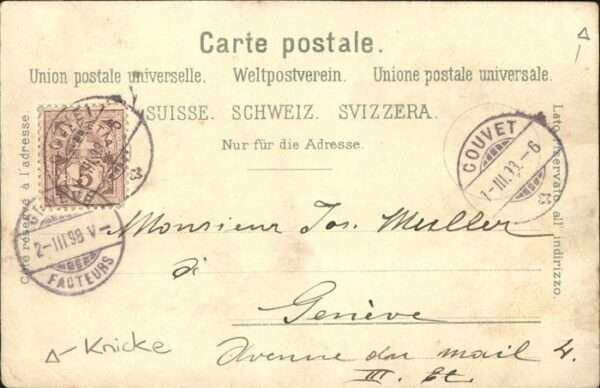 Carte postale.
Union postale universelle. Weltpostverein. Unione postale universale.
SUISSE. SCHWEIZ. SVIZZERA.
Nur für die Adresse.
Côté réservé à l'adresse.
Lato riservato all' indirizzo.
COUVET
1-III.98.-6
COUVET
5
2-III 98 V-
FACTEURS
Monsieur Jos. Muller
à
Genève
Avenue du mail 4.
III. Et.
Knicke